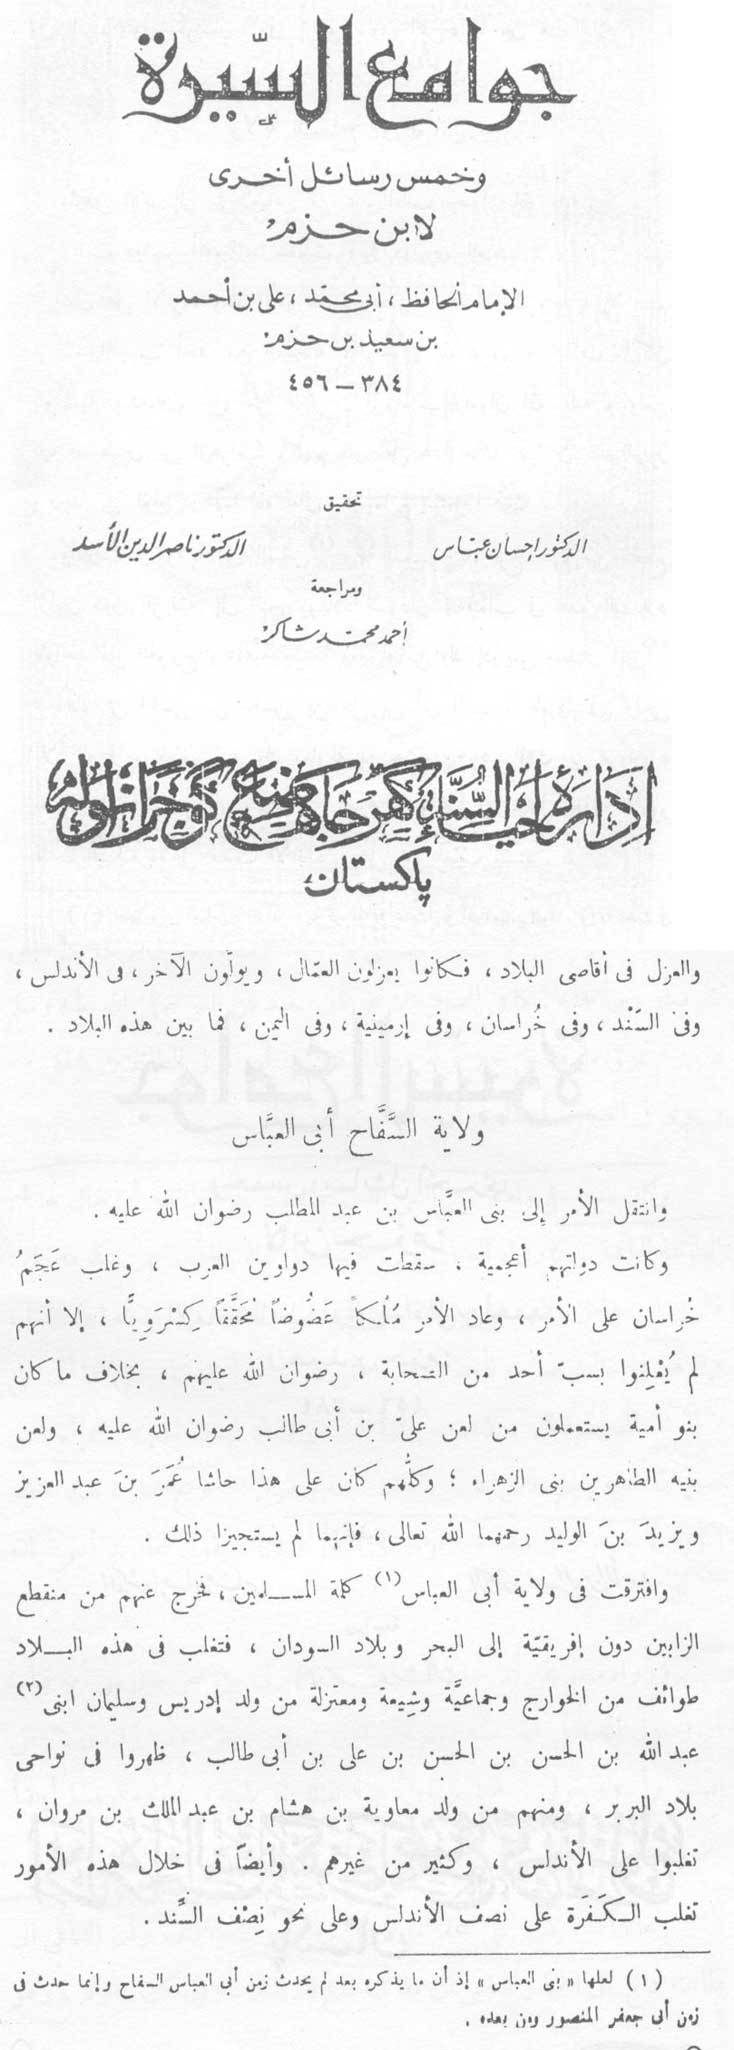 جوامع السّيرة
وخمس رسائل أخرى
لابن حزم
الإمام الحافظ ، أبي محمّد ، على بن أحمد
بن سعيد بن حزم
٣٨٤ – ٤٥٦
تحقيق
الدكتور إحسان عبّاس
الدكتور ناصر الدين الأسد
ومراجعة
أحمد محمد شاكر
إدارة إحياء السنة گھرجاکھ ضلع گوجرانواله
پاکستان
والعزل فى أقاصى البلاد ، فكانوا يعزلون العمّال ، ويولّون الآخر ، فى الأندلس ،
وفى السّنْد ، وفى خُراسان ، وفى إرمينية ، وفى اليمن ، فما بين هذه البلاد .
ولاية السَّفَّاح أبى العبَّاس
وانتقل الأمر إلى بنى العبَّاس بن عبد المطلب رضوان الله عليه .
وكانت دولتهم أعجمية ، سقطت فيها دواوين العرب ، وغلب عَجَمُ
خُراسان على الأمر ، وعاد الأمر مُلْكاً عَضُوضاً مُحَقَّقاً كِسْرَوِيًّا ، إلا أنهم
لم يُعْلِنوا بسبّ أحد من الصحابة ، رضوان الله عليهم ، بخلاف ما كان
بنو أمية يستعملون من لعن علىّ بن أبى طالب رضوان الله عليه ، ولعن
بنيه الطاهرين بنى الزهراء ؛ وكلُّهم كان على هذا حاشا عُمَرَ بنَ عبد العزيز
ويزيدَ بنَ الوليد رحمهما الله تعالى ، فإنهما لم يستجيزا ذلك .
وافترقت فى ولاية أبى العباس (١) كلمة المسلمين ، فخرج عنهم من منقطع
الزابين دون إفريقيّة إلى البحر وبلاد السودان ، فتغلب فى هذه البلاد
طوائف من الخوارج وجماعيَّة وشِيعة ومعتزلة من ولد إدريس وسليمان ابنى (٢)
عبد الله بن الحسن بن الحسن بن على بن أبى طالب ، ظهروا فى نواحى
بلاد البربر ، ومنهم من ولد معاوية بن هشام بن عبد الملك بن مروان ،
تغلبوا على الأندلس ، وكثير من غيرهم . وأيضاً فى خلال هذه الأمور
تغلب الكَفَرَة على نصف الأندلس وعلى نحو نِصْف السِّند .
(١) لعلها « بنى العباس » إذ أن ما يذكره بعد لم يحدث زمن أبى العباس السفاح وإنما حدث فى
زمن أبى جعفر المنصور ومن بعده .